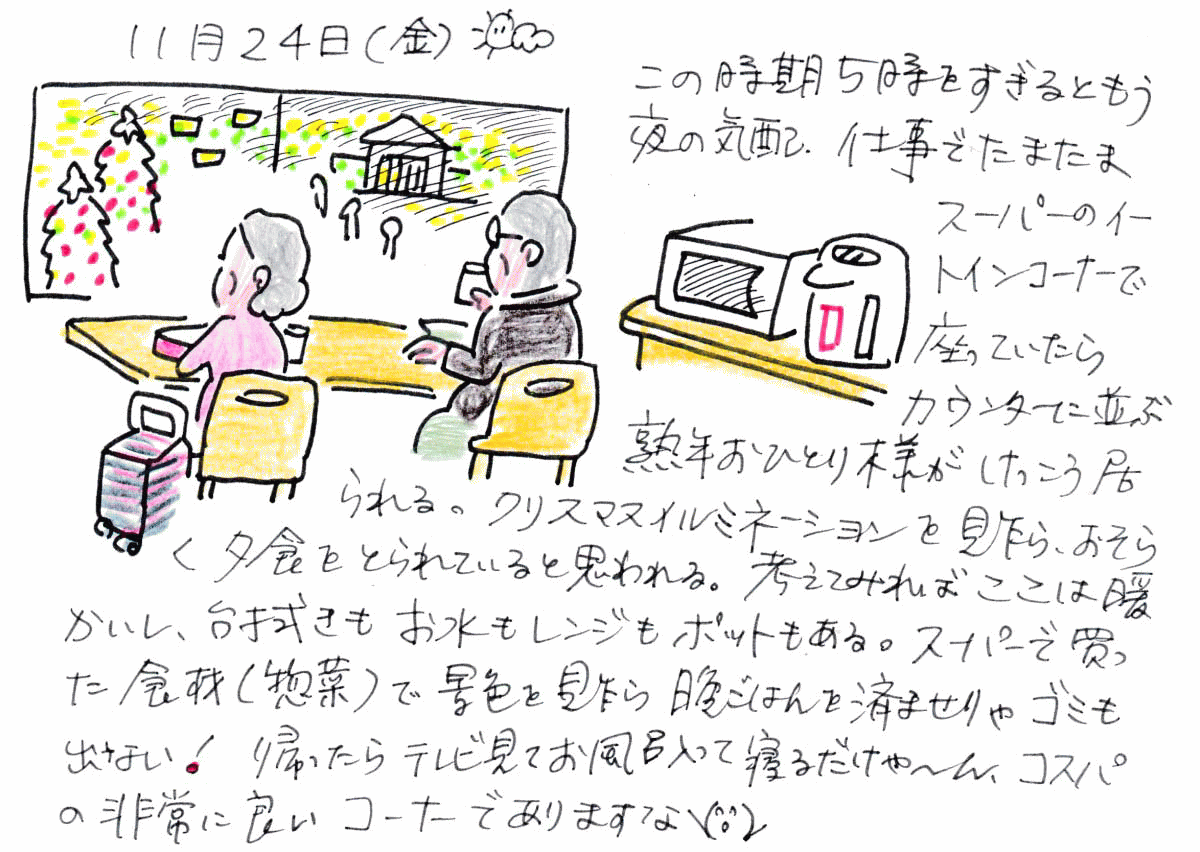 11月24日(金)
この時期5時をすぎるともう
夜の気配、仕事でたまたま
スーパーのイー
トインコーナーで
座っていたら
カウンターに並ぶ
熟年おひとり様がけっこう居
られる。クリスマスイルミネーションを見乍ら、おそら
く夕食をとられていると思われる。考えてみればここは暖
かいし、台拭きもお水もレンジもポットもある。スーパーで買っ
た食材(惣菜)で景色を見乍ら晩ごはんを済ませりゃゴミも
出ない!帰ったらテレビ見てお風呂入って寝るだけや〜ん、コスパ
の非常に良いコーナーでありますな